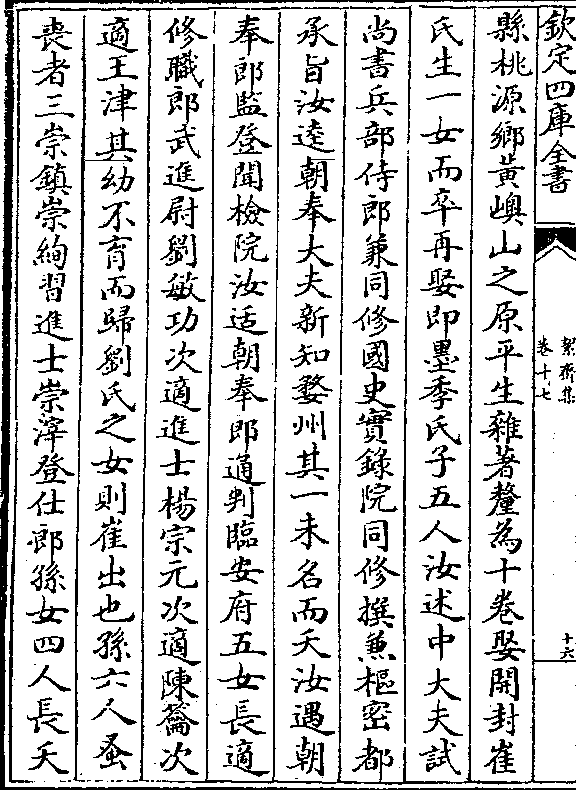 欽定四庫全書
絜齋集
卷十七
十六
縣桃源鄉黃嶼山之原平生雜著釐為十卷娶開封崔
氏生一女而卒再娶即墨季氏子五人汝述中大夫試
尚書兵部侍郎兼同修國史實錄院同修撰兼樞密都
承旨汝逵朝奉大夫新知婺州其一未名而夭汝遇朝
奉郎監登聞檢院汝适朝奉郎通判臨安府五女長適
修職郎武進尉劉敏功次適進士楊宗元次適陳籥次
適王津其幼不育而歸劉氏之女則崔出也孫六人蚤
喪者三崇鎮崇絢習進士崇滓登仕郎孫女四人長夭